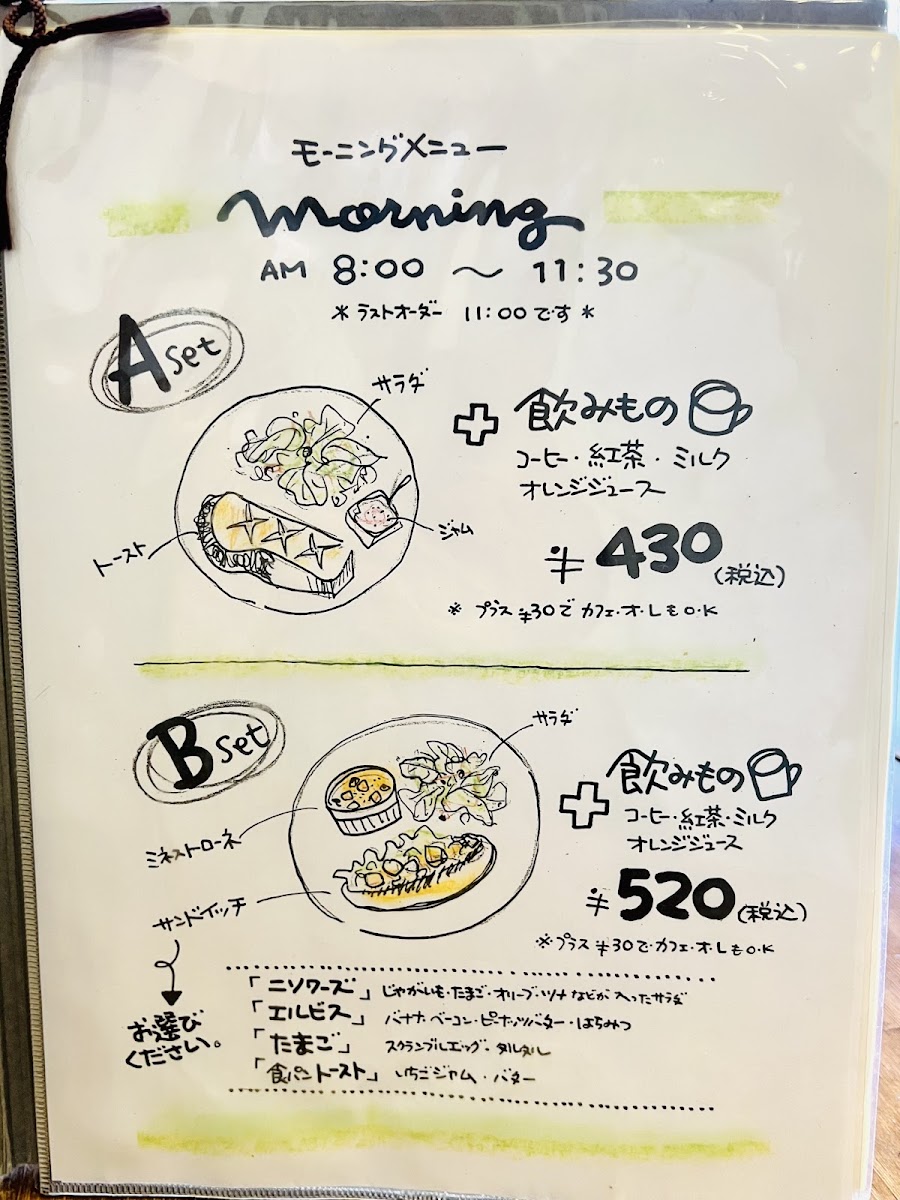 モーニングメニュー
morning
AM 8:00 〜 11:30
＊ラストオーダー 11:00です＊
A set
サラダ
トースト
ジャム
＋ 飲みもの
コーヒー・紅茶・ミルク
オレンジジュース
¥430(税込)
※ プラス¥30で カフェ・オ・LもO・K
B set
サラダ
ミネストローネ
サンドイッチ
＋ 飲みもの
コーヒー・紅茶・ミルク
オレンジジュース
¥520(税込)
※プラス ¥30で・カフェ・オ・LもO・K
お選び
ください。
「ニソワーズ」 じゃがいも・たまご・オリーブ・ツナ などが入ったサラダ
「エルビス」 バナナ・ベーコン・ピーナッツバター・はちみつ
「たまご」 スクランブルエッグ・タルタル
「食パントースト」 いちごジャム・バター